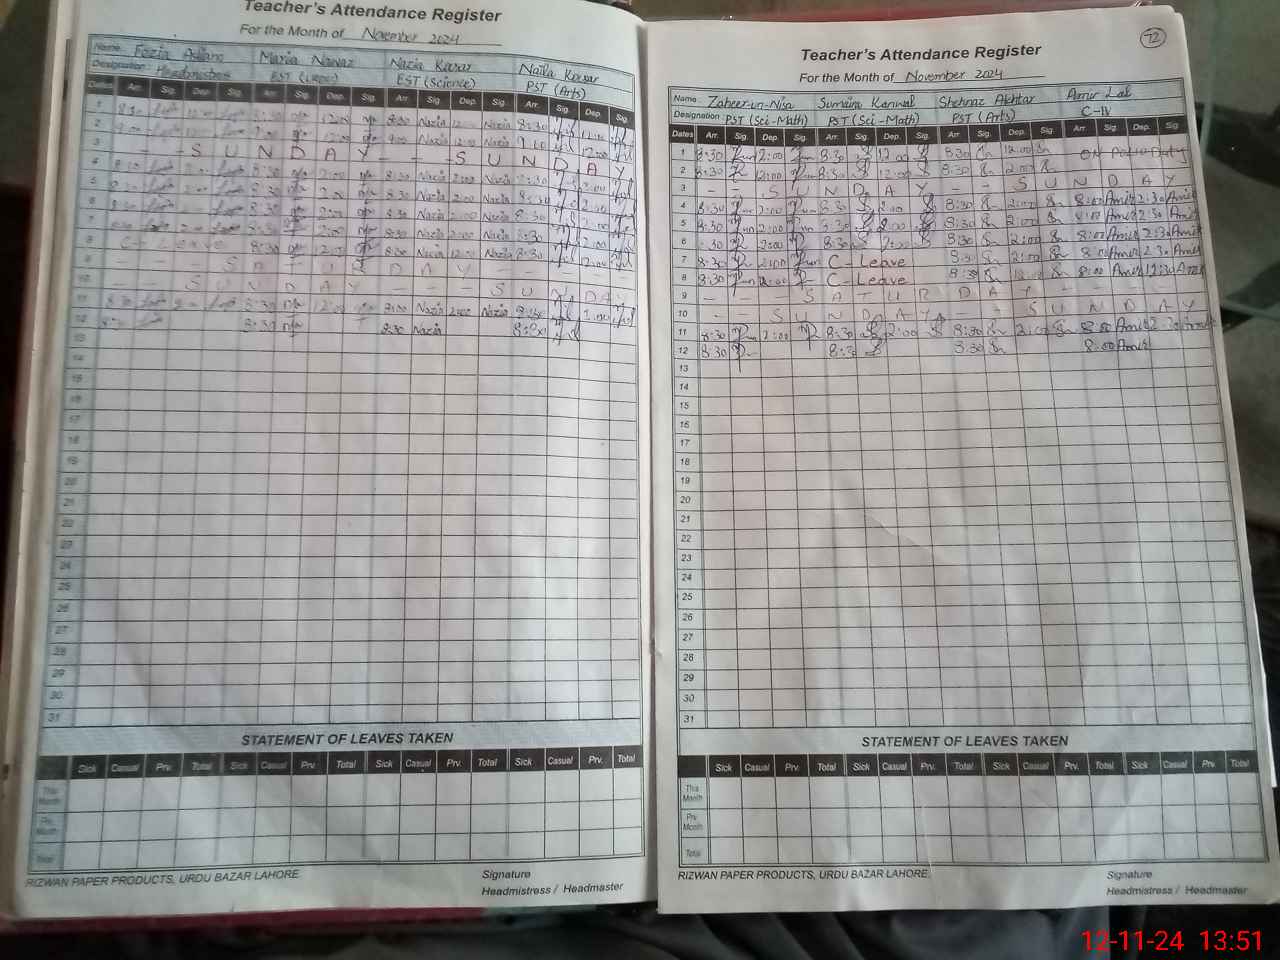 Teacher's Attendance Register
For the Month of November 2024
Name Fozia Maria Nawaz Nazia Kousar Naila Kousar
Designation Headmistress EST (Urdu) EST (Science) PST (Arts)
Dates Arr. Sig. Dep. Sig. Arr. Sig. Dep. Sig. Arr. Sig. Dep. Sig. Arr. Sig. Dep. Sig.
1 8:30 12:00 8:30 12:00 8:30 Nazia 12:00 Nazia 8:30
2 9:00 12:00 9:00 Nazia 12:00 Nazia 9:00 12:00
3 - - S U N D A Y - - - S U N D A Y
4 8:30 8:30 2:00 8:30 Nazia 2:00 Nazia 8:30 2:00
5 8:30 8:30 2:00 8:30 Nazia 2:00 Nazia 8:30 2:00
6 8:30 8:30 2:00 8:30 Nazia 2:00 Nazia 8:30 2:00
7 8:30 8:30 2:00 8:30 Nazia 2:00 Nazia 8:30 2:00
8 C - Leave 8:30 12:00 8:30 Nazia 12:00 Nazia 8:30 12:00
9 - - - S A T U R D A Y - - - -
10 - - S U N D A Y - - - S U N D A Y
11 8:30 8:30 Nazia 2:00 Nazia 8:30
12 8:30 8:30 8:30 Nazia 8:30
13
14
15
16
17
18
19
20
21
22
23
24
25
26
27
28
29
30
31
STATEMENT OF LEAVES TAKEN
Sick Casual Prv. Total Sick Casual Prv. Total Sick Casual Prv. Total Sick Casual Prv. Total
This Month
Prv. Month
Total
RIZWAN PAPER PRODUCTS, URDU BAZAR LAHORE.
Signature
Headmistress / Headmaster
72
Teacher's Attendance Register
For the Month of November 2024
Name Zaheer-un-Nisa Sumaira Kanwal Shehnaz Akhtar Amir Lal
Designation PST (Sci-Math) PST (Sci-Math) PST (Arts) C-IV
Dates Arr. Sig. Dep. Sig. Arr. Sig. Dep. Sig. Arr. Sig. Dep. Sig. Arr. Sig. Dep. Sig
1 8:30 12:00 8:30 12:00 8:30 12:00 ON Polio Duty
2 8:30 12:00 8:30 12:00 8:30 2:00
3 - - S U N D A Y - - S U N D A Y
4 8:30 2:00 8:30 2:00 8:30 2:00 8:00 Amir 2:30 Amir
5 8:30 2:00 8:30 2:00 8:30 2:00 8:00 Amir 2:30 Amir
6 8:30 2:00 8:30 2:00 8:30 2:00 8:00 Amir 2:30 Amir
7 8:30 2:00 C - Leave 8:30 2:00 8:00 Amir 2:30 Amir
8 8:30 12:00 C - Leave 8:30 12:00 8:00 Amir 12:30 Amir
9 - - - S A T U R D A Y - - - -
10 - - S U N D A Y - - S U N D A Y
11 8:30 2:00 8:30 2:00 8:30 2:00 8:00 Amir 2:30 Amir
12 8:30 8:30 8:30 8:00 Amir
13
14
15
16
17
18
19
20
21
22
23
24
25
26
27
28
29
30
31
STATEMENT OF LEAVES TAKEN
Sick Casual Prv. Total Sick Casual Prv. Total Sick Casual Prv. Total Sick Casual Prv. Total
This Month
Prv Month
Total
RIZWAN PAPER PRODUCTS, URDU BAZAR LAHORE.
Signature
Headmistress / Headmaster
12-11-24 13:51